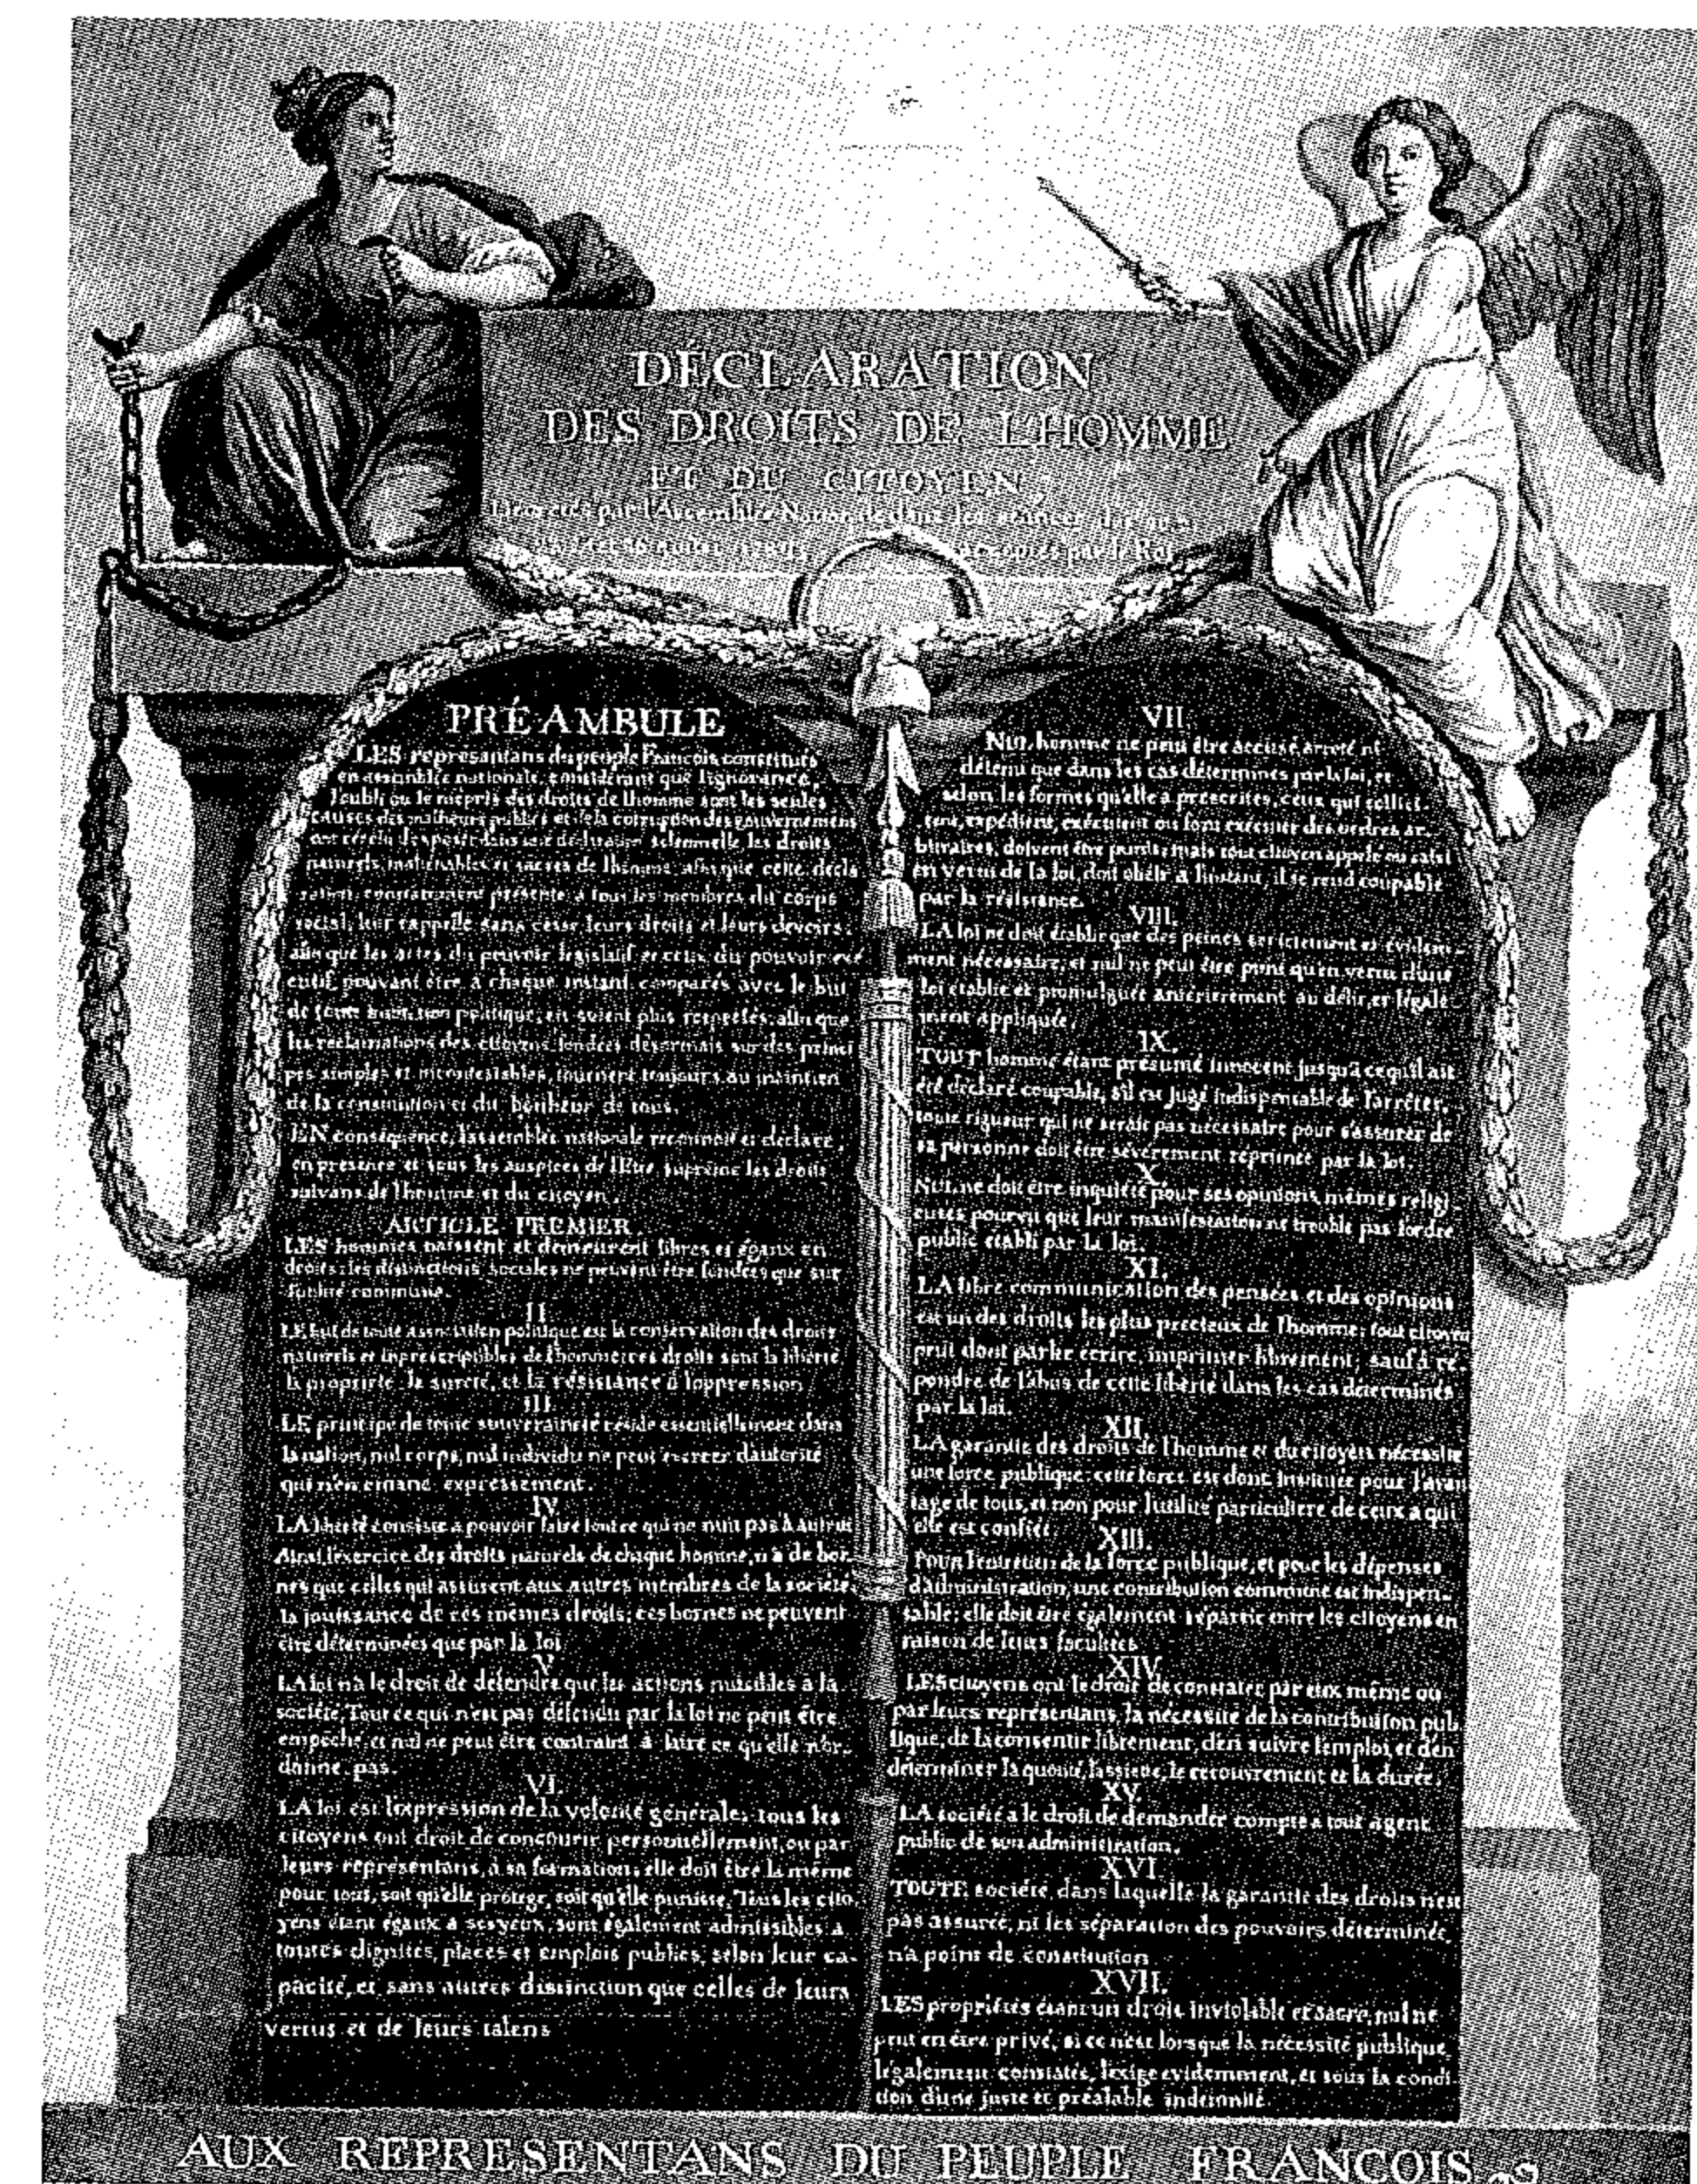 DÉCLARATION
DES DROITS DE L'HOMME
ET DU CITOYEN,
Décretés par l'Assemblée Nationale dans les séances des
août 1789, acceptés par le Roi
PRÉAMBULE
LES représantans du peuple François constitués
en assemblée nationale, considérant que l'ignorance,
l'oubli ou le mépris des droits de l'homme sont les seules
causes des malheurs publics et de la corruption des gouvernemens
ont résolu d'exposer dans une déclaration solemnelle, les droits
naturels, inaliénables et sacrés de l'homme, afin que cette décla
ration constamment présente à tous les membres du corps
social, leur rappelle sans cesse leurs droits et leurs devoirs,
afin que les actes du pouvoir législatif et ceux du pouvoir exé
cutif, pouvant être à chaque instant comparés avec le but
de toute institution politique, en soient plus respectés; afin que
les réclamations des citoyens, fondées désormais sur des princi
pes simples et incontestables, tournent toujours au maintien
de la constitution et du bonheur de tous.
EN conséquence, l'assemblée nationale reconnoit et déclare,
en présence et sous les auspices de l'Etre suprême les droits
suivans de l'homme et du citoyen.
ARTICLE PREMIER.
LES hommes naissent et demeurent libres et égaux en
droits; les distinctions sociales ne peuvent être fondées que sur
l'utilité commune.
II.
LE but de toute association politique est la conservation des droits
naturels et imprescriptibles de l'homme; ces droits sont la liberté,
la propriété, la sureté, et la résistance à l'oppression.
III.
LE principe de toute souveraineté réside essentiellement dans
la nation, nul corps, nul individu ne peut exercer d'autorité
qui n'en émane expressément.
IV.
LA liberté consiste à pouvoir faire tout ce qui ne nuit pas à autrui
Ainsi, l'exercice des droits naturels de chaque homme, n'a de bor-
nes que celles qui assurent aux autres membres de la société
la jouissance de ces mêmes droits; ces bornes ne peuvent
être déterminées que par la loi
V.
LA loi n'a le droit de défendre que les actions nuisibles à la
société. Tout ce qui n'est pas défendu par la loi ne peut être
empêché, et nul ne peut être contraint à faire ce qu'elle n'or-
donne pas.
VI.
LA loi est l'expression de la volonté générale; tous les
citoyens ont droit de concourir personnellement, ou par
leurs représentans, à sa formation; elle doit être la même
pour tous, soit qu'elle protège, soit qu'elle punisse. Tous les cito-
yens étant égaux à ses yeux, sont également admissibles à
toutes dignités, places et emplois publics, selon leur ca-
pacité, et sans autres distinction que celles de leurs
vertus et de leurs talens
VII.
NUL homme ne peut être accusé, arreté ni
détenu que dans les cas déterminés par la loi, et
selon les formes qu'elle a prescrites, ceux qui sollici-
tent, expédient, exécutent ou font exécuter des ordres ar-
bitraires, doivent être punis; mais tout citoyen appelé ou saisi
en vertu de la loi, doit obéir à l'instant, il se rend coupable
par la résistance.
VIII.
LA loi ne doit établir que des peines strictement et évidem-
ment nécessaire, et nul ne peut être puni qu'en vertu d'une
loi établie et promulguée antérierement au délit, et légale
ment appliquée.
IX.
TOUT homme étant présumé innocent jusqu'à ce qu'il ait
été déclaré coupable, s'il est jugé indispensable de l'arrêter,
toute rigueur qui ne serait pas nécessaire pour s'assurer de
sa personne doit être sévèrement réprimée par la loi.
X.
NUL ne doit être inquiété pour ses opinions, mêmes religi
euses pourvu que leur manifestation ne trouble pas l'ordre
public établi par la loi.
XI.
LA libre communication des pensées et des opinions
est un des droits les plus precieux de l'homme; tout citoyen
peut dont parler écrire, imprimer librement; sauf à ré-
pondre de l'abus de cette liberté dans les cas déterminés
par la loi.
XII.
LA garantie des droits de l'homme et du citoyen nécessite
une force publique; cette force est donc instituée pour l'avan
tage de tous, et non pour l'utilité particuliere de ceux a qui
elle est confiée.
XIII.
POUR l'entretien de la force publique, et pour les dépenses
d'administration, une contribution commune est indispen-
sable; elle doit être également répartie entre les citoyens en
raison de leurs facultées
XIV.
LES citoyens ont le droit de constater par eux même ou
par leurs représentans, la nécessité de la contribution pub
lique, de la consentir librement, d'en suivre l'emploi, et d'en
déterminer la quotité, l'assiette, le recouvrement et la durée.
XV.
LA société a le droit de demander compte a tout agent
public de son administration.
XVI.
TOUTE société, dans laquelle la garantie des droits n'est
pas assurée, ni les séparation des pouvoirs déterminée,
n'a point de constitution
XVII.
LES propriétés étant un droit inviolable et sacré, nul ne
peut en être privé, si ce n'est lorsque la nécessité publique,
légalement constatée, l'exige evidemment, et sous la condi-
tion d'une juste et préalable indemnité.
AUX REPRESENTANS DU PEUPLE FRANCOIS